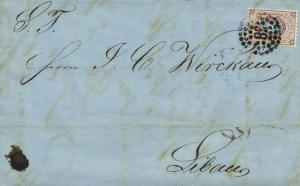 S. T.
Herren J. C. Wirckau
Libau